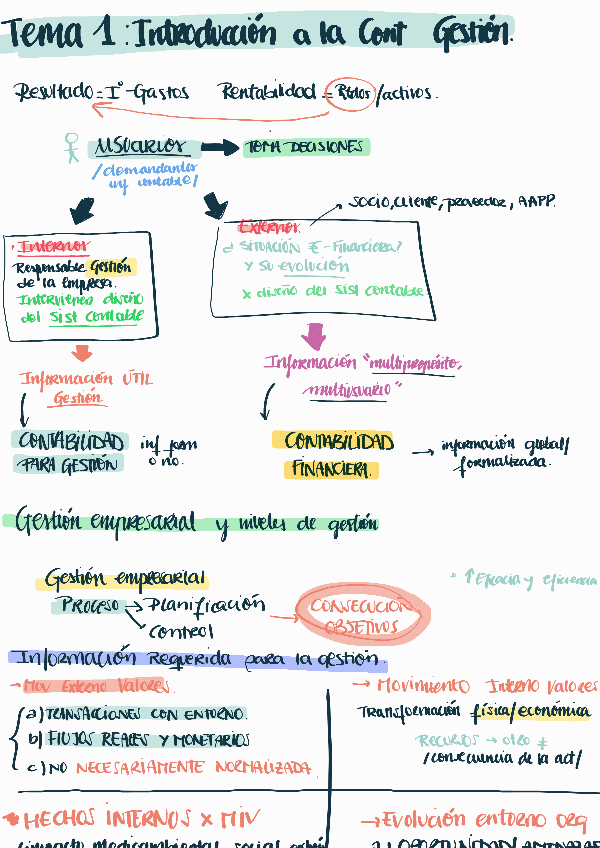 Tema 1: Introducción a la Cont Gestión.
Resultado = Iº-Gastos Rentabilidad = Rtdos/activos.
USUARIOS → TOMA DECISIONES
/demandantes
inf contable/
SOCIO, cliente, proveedor, AAPP.
· Internos
Responsable Gestión
de la empresa.
Intervienen diseño
del Sist contable
Externos
¿ SITUACIÓN €-Financiera?
y su evolución
x diseño del Sist contable
Información ÚTIL
Gestión
Información "multipropósito,
multiusuario"
CONTABILIDAD
PARA GESTIÓN
inf form
o no.
CONTABILIDAD
FINANCIERA.
→ información global/
formalizada.
Gestión empresarial y niveles de gestión
Gestión empresarial
PROCESO → Planificación
Control
CONSECUCIÓN
OBJETIVOS
↑ Eficacia y eficiencia
Información Requerida para la gestión.
→ Mov Externo Valores.
a) TRANSACCIONES CON ENTORNO.
b) FLUJOS REALES Y MONETARIOS
c) NO NECESARIAMENTE NORMALIZADA
→ Movimiento Interno Valores
Transformación física/económica
RECURSOS → otro ≠
/consecuencia de la act/
HECHOS INTERNOS x MIV
→ Evolución entorno org